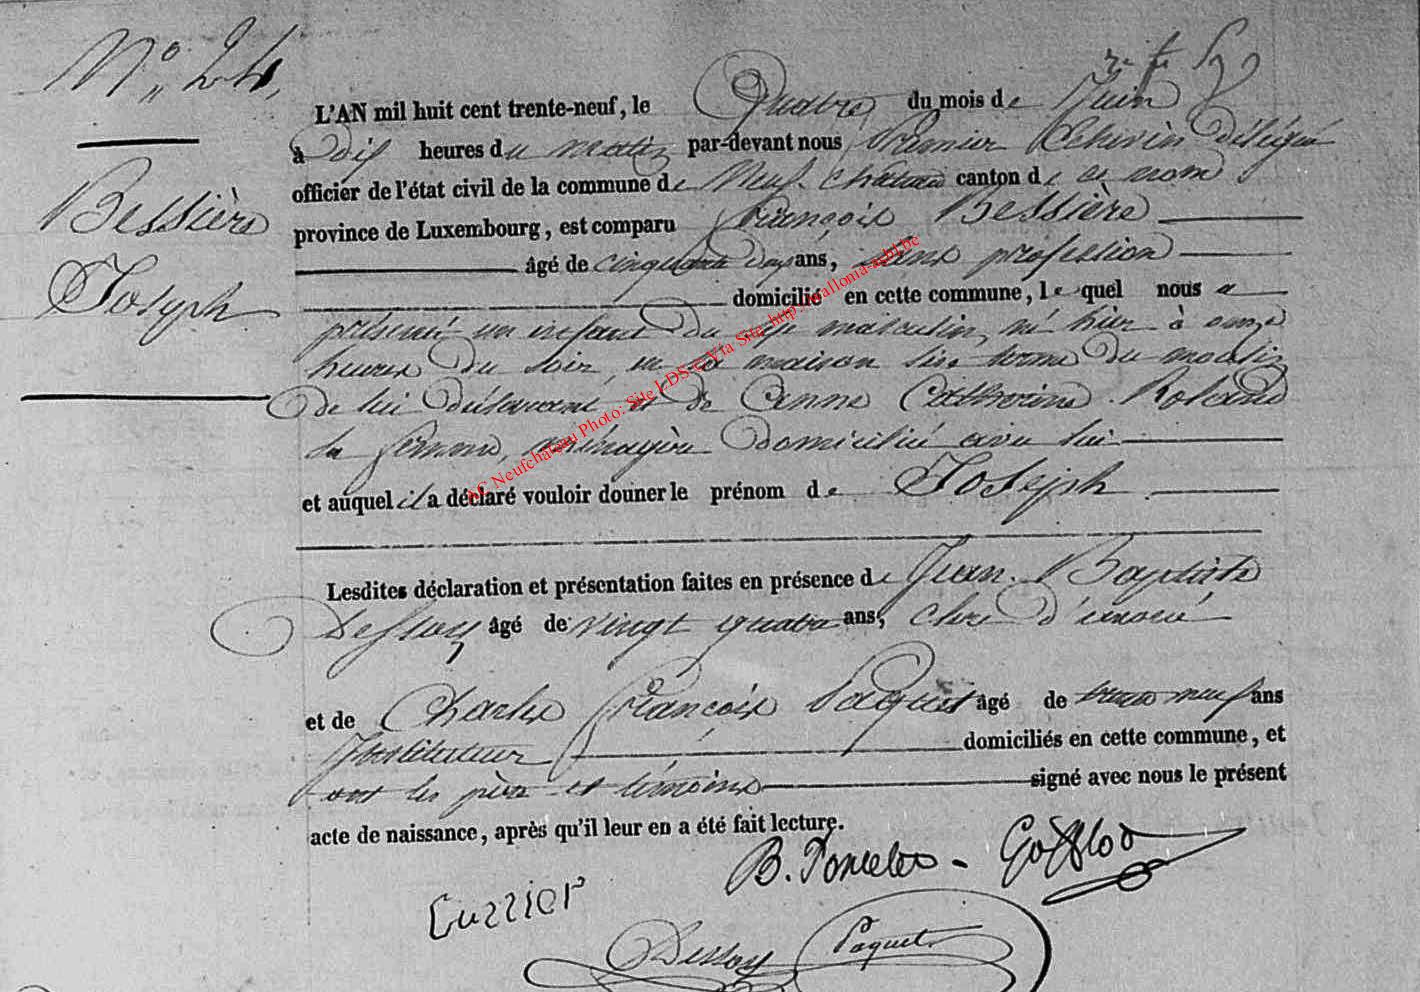 N° 24,
L'AN mil huit cent trente-neuf, le Quatre du mois de Juin
à Dix heures du matin par-devant nous Premier Echevin délégué
officier de l'état civil de la commune de Neuf-château canton de ce nom
Bessière
province de Luxembourg, est comparu françois Bessière
âgé de cinquante ans, sans profession
Joseph
domicilié en cette commune, lequel nous a
présenté un enfant Du sexe masculin, né hier à onze
heures Du soir, en sa maison sise Du moulin
De lui Déclarant, et de Anne Catherine Roland
sa femme, ménagère Domiciliée avec lui
et auquel il a déclaré vouloir donner le prénom de Joseph
Lesdites déclaration et présentation faites en présence de Jean-Baptiste
Dessoy âgé de vingt quatre ans, clerc d'avoué
et de Charles françois Paquet âgé de trente neuf ans
Instituteur domiciliés en cette commune, et
ont les père et témoins signé avec nous le présent
acte de naissance, après qu'il leur en a été fait lecture.
B. Poncelet - 
Dessoy Paquet
AC Neufchâteau Photo: Site LDS - Via Site http://wallonia-asbl.be